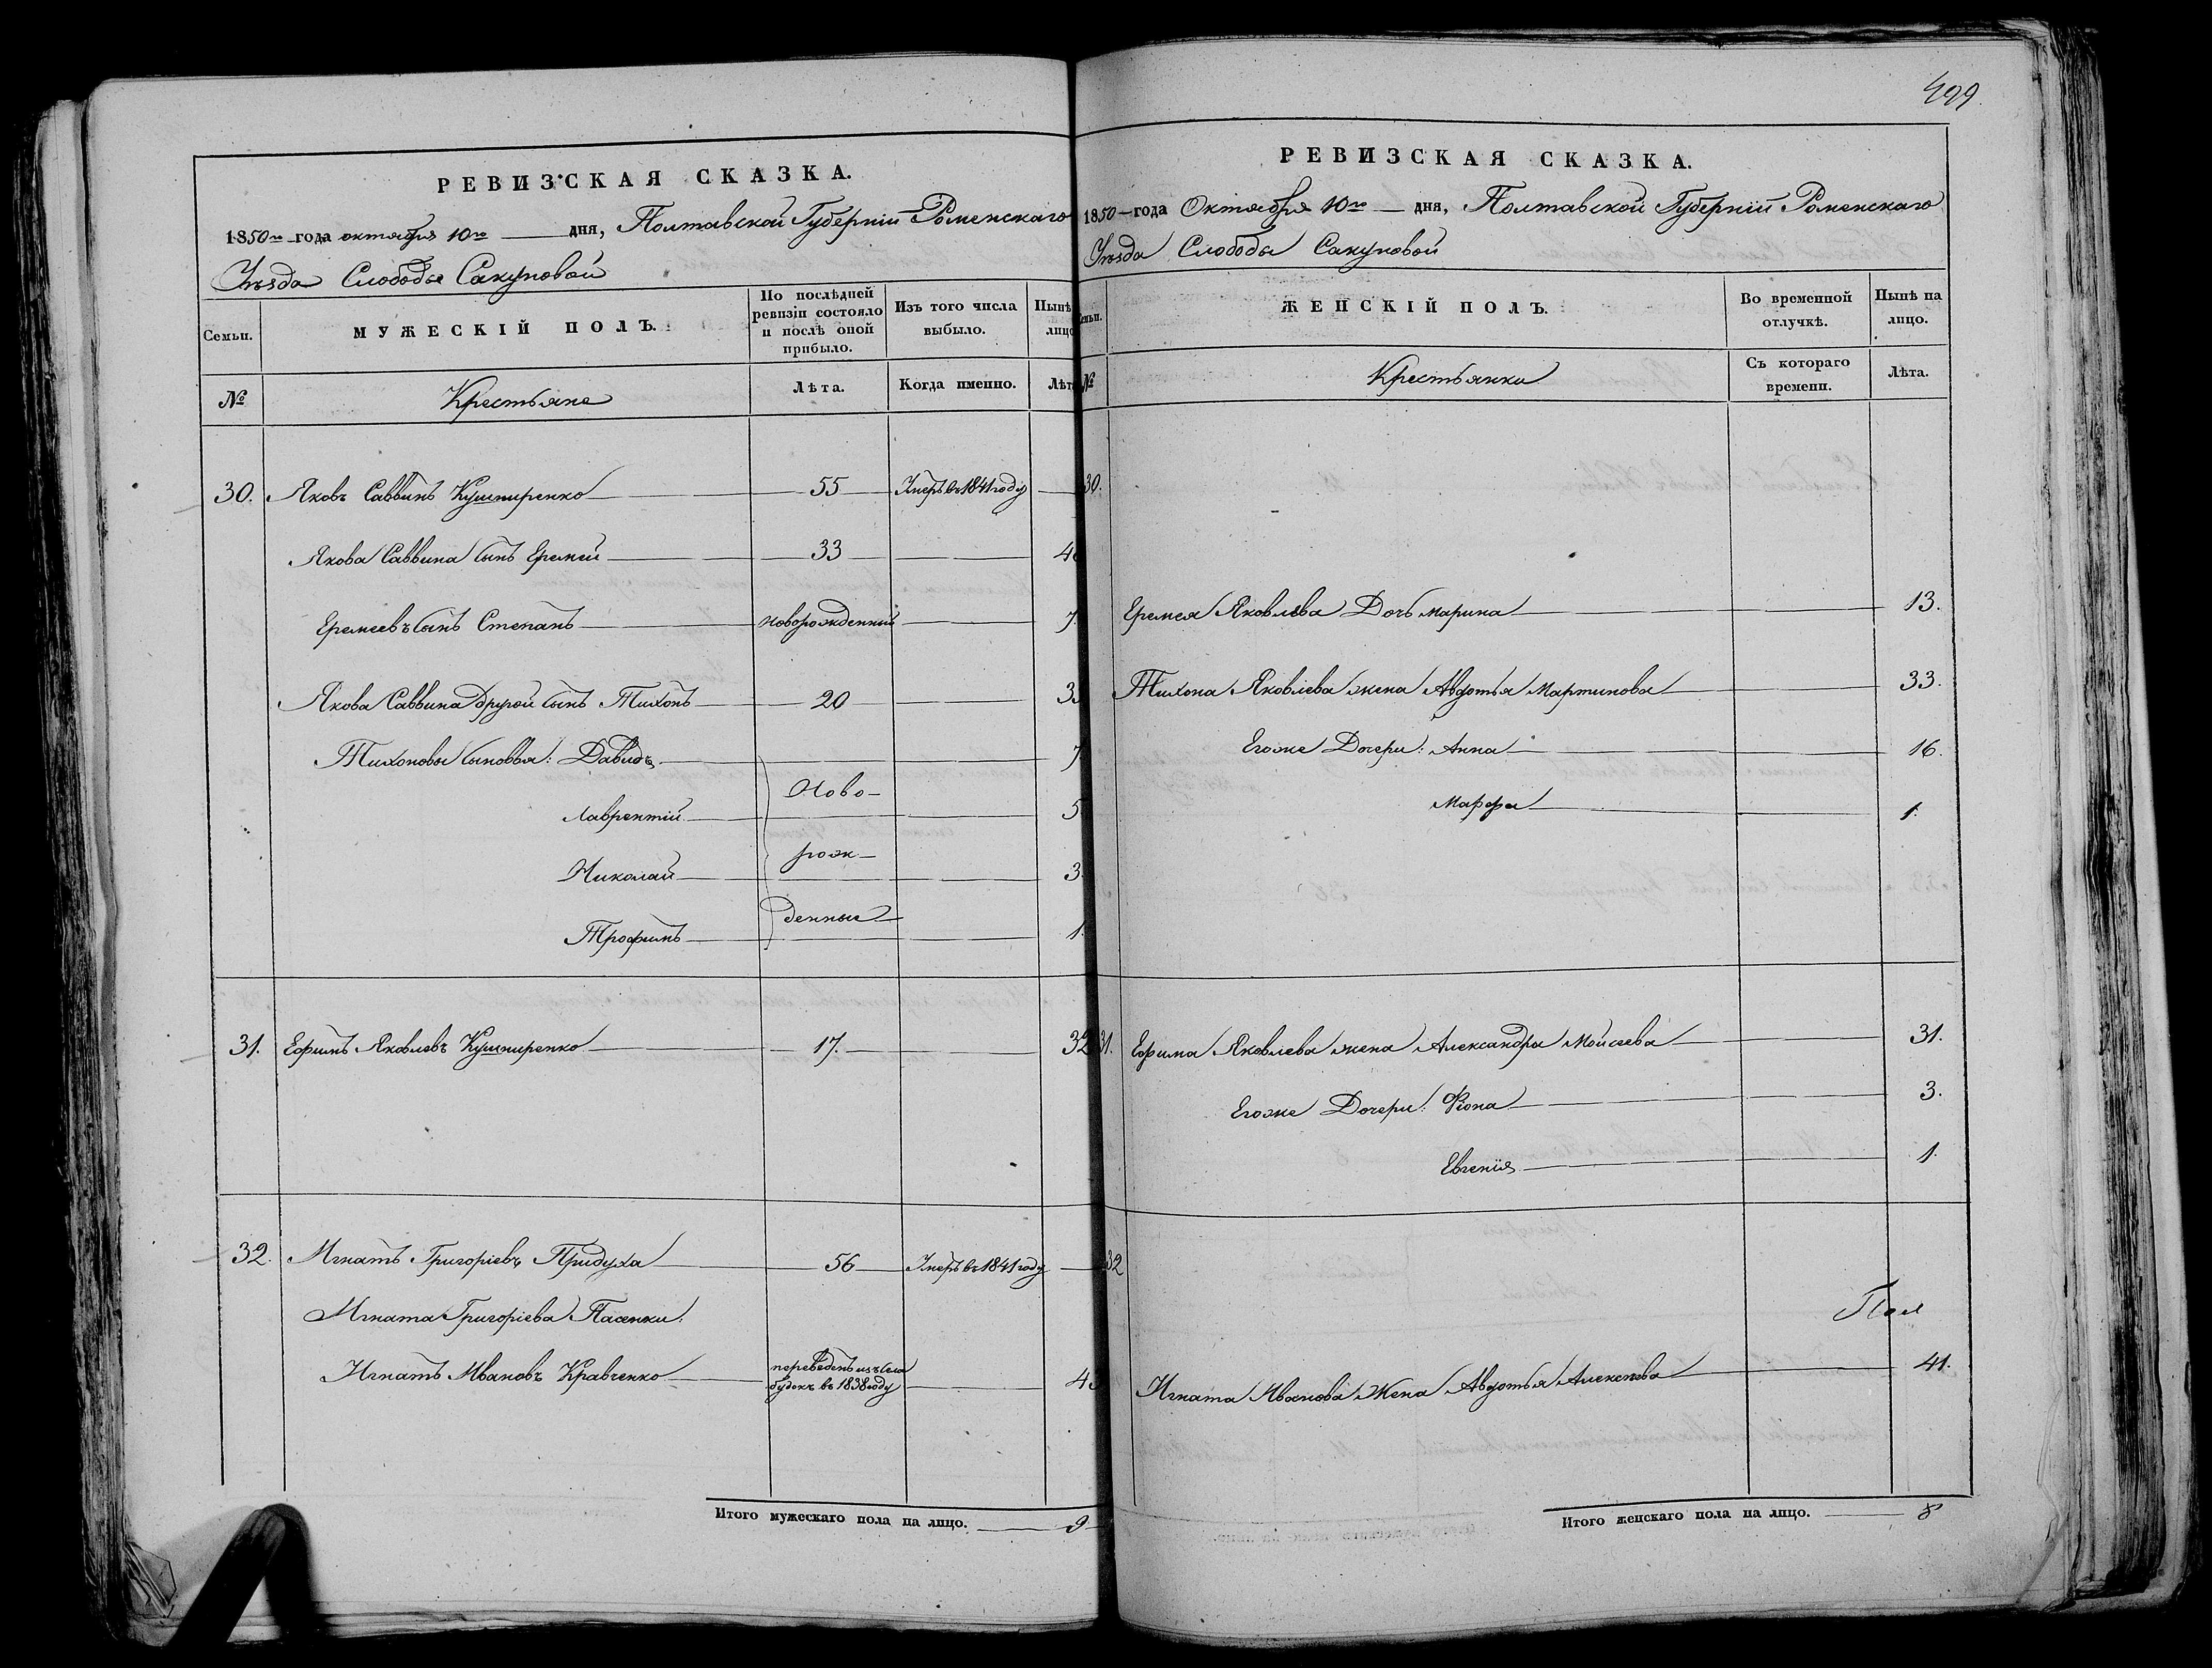 РЕВИЗСКАЯ СКАЗКА.
1850го года октября 10го дня, Полтавской Губернiи Роменскаго
Уѣзда Слободы Сакуновой
Семьи.
МУЖЕСКІЙ ПОЛЪ.
По послѣдней ревизіи состояло и послѣ оной прибыло.
Изъ того числа выбыло.
Нынѣ лицо
№
Крестьяне
Лѣта.
Когда именно.
Лѣта
30. Яковъ Саввинъ Кушниренко 55 Умеръ въ 1841 году
Якова Саввина сынъ Еремей 33
Еремеевъ сынъ Степанъ новорожденный 7
Якова Саввина другой сынъ Тихонъ 20
Тихоновы сыновья: Давидъ 7
Лаврентiй Ново- 5
Николай рож- 3
Трофимъ денные 1.
31. Ефимъ Яковлевъ Кушниренко 17. 32
32. Игнатъ Григорiевъ Придуха 56 Умеръ въ 1841 году
Игната Григорiева Пасенки:
Игнатъ Ивановъ Кравченко переведенъ изъ села будокъ въ 1838 году
Итого мужескаго пола на лицо. 9
499.
РЕВИЗСКАЯ СКАЗКА.
1850 года Октября 10го дня, Полтавской Губернiи Роменскаго
Уѣзда Слободы Сакуновой
Семьи.
ЖЕНСКІЙ ПОЛЪ.
Во временной отлучкѣ.
Нынѣ на лицо.
№
Крестьянки
Съ котораго времени.
Лѣта.
30.
Еремея Яковлева Дочь Марина 13.
Тихона Яковлева жена Авдотья Мартинова 33.
Егоже Дочери: Анна 16.
Марфа 1.
31. Ефима Яковлева жена Александра Моисеева 31.
Егоже Дочери: Фiона 3.
Евгенiя 1.
32
Игната Иванова Жена Авдотья Алексѣева 41.
Итого женскаго пола на лицо. 8